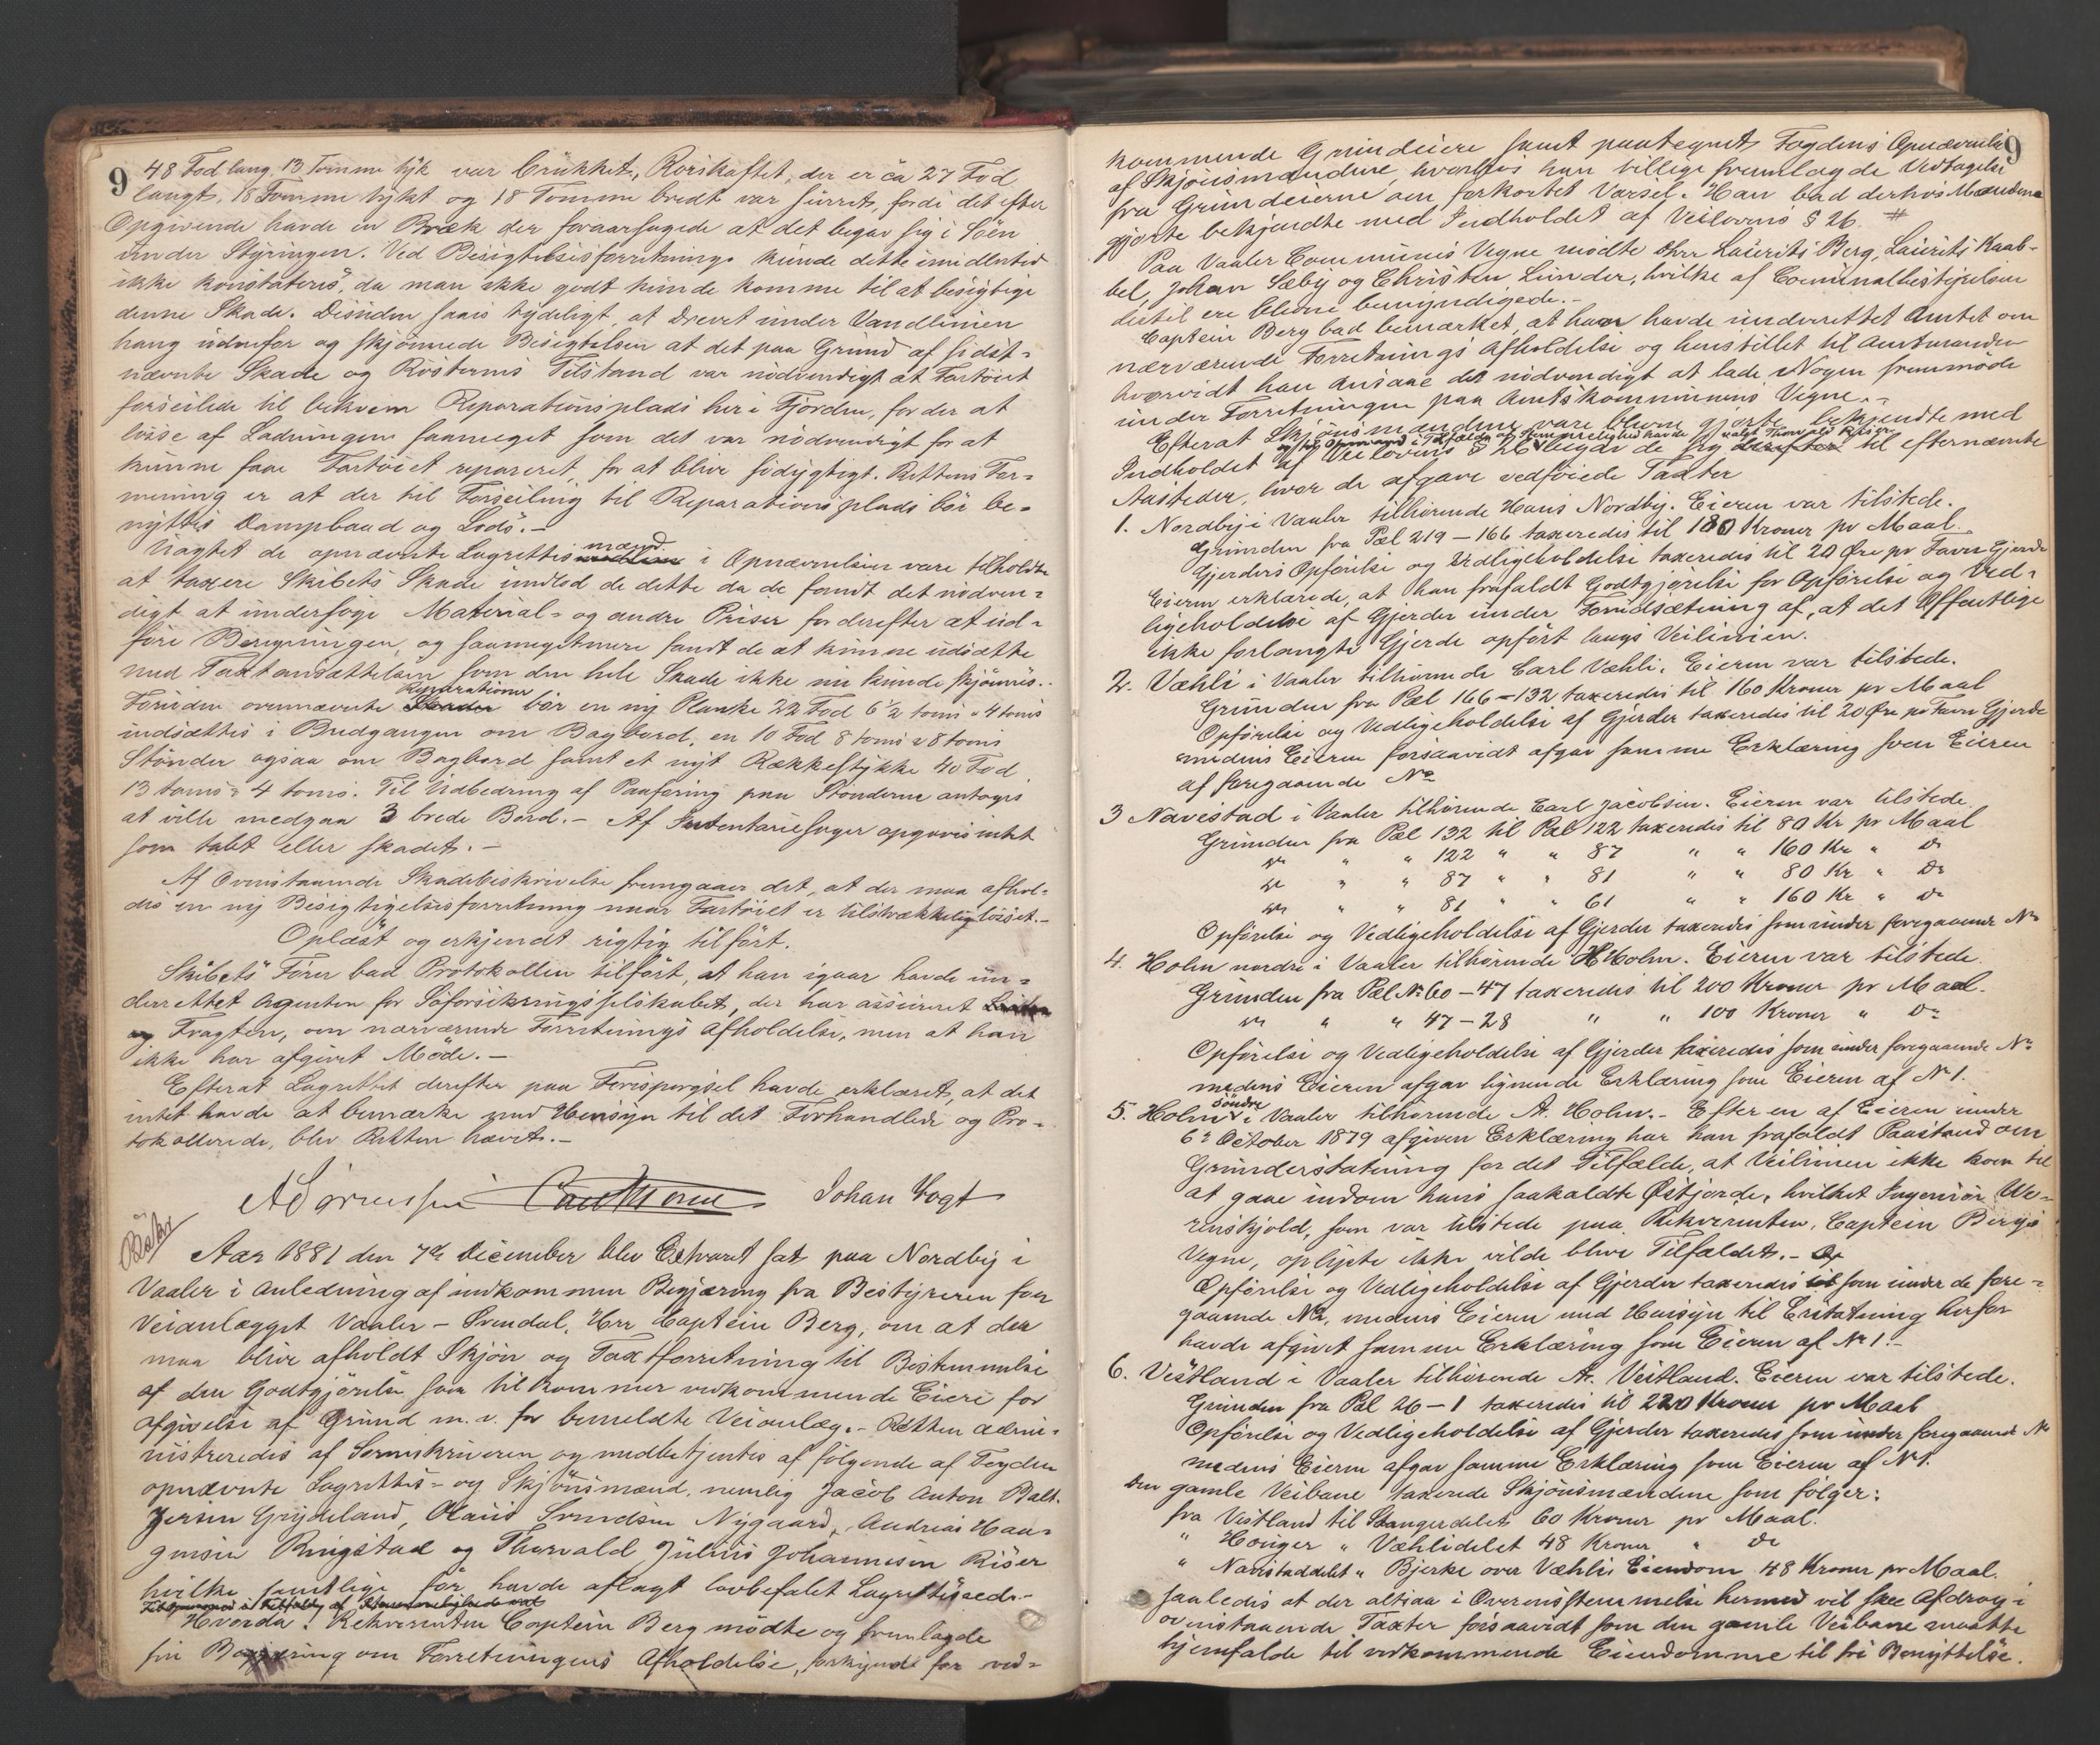 9
48 Fod lang, 13 Tomme tyk var brukket, Rorskaftet, der er ca 27 Fod
langt, 18 Tomme tykt og 18 Tomme bredt var surret, fordi det efter
Opgivende havde en Bræk der foraarsagede at det begav sig i Søen
under Styringen. Ved Besigtelsesforretninge kunde dette imidlertid
ikke konstateres, da man ikke godt kunde komme til at besigtige
denne Skade. Desuden saaes tydeligt, at Drevet under Vandlinien
hang udenfor og skjønnede Besigtelsen at det paa Grund af sidst-
nævnte Skade og Rosterens Tilstand var nødvendigt at Fartøiet
forseilede til bekvem Reparationsplads her i Fjorden, for der at
losse af Ladningen saameget som det var nødvendigt for at
kunne faae Fartøiet repareret, for at blive sødygtigt. Rettens For-
mening er at der til Forseiling til Reparationsplads bør be-
nyttes Dampbaad og Lods.-
Uagtet de opnævnte Lagrettesmænd i Opnævnelsen vare tilholdte
at taxere Skibets Skade undlod de dette da de fandt det nødven-
digt at undersøge Material- og andre Priser for derefter at ud-
føre Beregningen, og saameget mere fandt de at kunne udsætte
med Taxtansættelsen som den hele Skade ikke nu kunde skjønnes.
Foruden ovennævnte Reparationer bør en ny Planke 22 Fod 6½ toms a 4 toms
indsættes i Bredgangen om Bagbord, en 10 Fod 8 toms a 8 toms
Stønder ogsaa om Bagbord samt et nyt Rækkestykke 40 Fod
13 toms a 4 toms. Til Udbedring af Paaforing paa Stønderne antoges
at ville medgaa 3 brede Bord.- Af Inventariesager opgaves intet
som tabt eller skadet.-
Af Ovenstaaende Skadebeskrivelse fremgaaer det, at der maa afhol-
des en ny Besigtigelsesforretning naar Fartøiet er tilstrækkelig losset.-
Oplæst og erkjendt rigtig tilført.
Skibets Fører bad Protokollen tilført, at han igaar havde un-
derrettet Agenten for Søforsikringsselskabet, der har assureret
og Fragten, om nærværende Forretnings Afholdelse, men at han
ikke har afgivet Møde.-
Efterat Lagrettet derefter paa Forespørgsel havde erklæret, at det
intet havde at bemærke med Hensyn til det Forhandlede og Pro-
tokollerede, blev Retten hævet.-
A Sørensen Johan Vogt
Aar 1881 den 7de December blev Extraret sat paa Nordby i
Vaaler i Anledning af indkommen Begjæring fra Bestyreren for
Veianlægget Vaaler - Svendal, Hrr Captein Berg, om at der
maa blive afholdt Skjøn og Taxtforretning til Bestemmelse
af den Godtgjørelse som tilkommer vedkommende Eiere for
Afgivelse af Grund m. v. for bemeldte Veianlæg.- Retten admi-
nistreredes af Sorenskriveren og medbetjentes af følgende af Fogden
opnævnte Lagrettes- og Skjønsmænd, nemlig Jacob Anton Balt-
zersen Grydeland, Olaus Svendsen Nygaard, Andreas Haa-
gensen Ringstad og Thorvald Julius Johannesen Riser
hvilke samtlige før havde aflagt lovbefalet Lagrettesed.-
Hvorda: Rekvirenten Captein Berg mødte og fremlagde
sin Begjæring om Forretningens Afholdelse, forkyndt for ved-
9
kommende Grundeiere samt paategnet Fogdens Opnævnelse
af Skjønsmændene, hvorhos han tillige fremlagde Vedtagelse
fra Grundeierne om forkortet Varsel. Han bad derhos Mændene
gjorte bekjendte med Indholdet af Veilovens § 26. #
Paa Vaaler Communes Vegne mødte Hrr Laurits Berg, Laurits Kaab-
bel, Johan Sæby og Christen Linder, hvilke af Communalbestyrelsen
dertil ere blevne bemyndigede.-
Captein Berg bad bemærket, at han havde underrettet Amtet om
nærværende Forretnings Afholdelse og henstillet til Amtmanden
hvorvidt han ansaae det nødvendigt at lade Nogen fremmøde
under Forretningen paa Amtskommunens Vegne.-
Efterat Skjønsmændene vare blevne gjorte bekjendte med
og til Opmand i Tilfælde af Stemmelighed havde valgt Thorvald Riser
Indholdet af Veilovens § 26 begav de sig derefter til efternævnte
Aasteder, hvor de afgave vedføiede Taxter
1. Nordby i Vaaler tilhørende Hans Nordby. Eieren var tilstede.
Grunden fra Pæl 219 - 166 taxeredes til 180 Kroner pr Maal.
Gjerders Opførelse og Vedligeholdelse taxeredes til 20 Øre pr Favn Gjerde
Eieren erklærede, at han frafaldt Godtgjørelse for Opførelse og Ved-
ligeholdelse af Gjerder under Forudsætning af, at det Offentlige
ikke forlangte Gjerde opført langs Veilinien.
2. Væhli i Vaaler tilhørende Carl Væhli. Eieren var tilstede.
Grunden fra Pæl 166-132 taxeredes til 160 Kroner pr Maal
Opførelse og Vedligeholdelse af Gjerder taxeredes til 20 Øre pr Favn Gjerde
medens Eieren forsaavidt afgav samme Erklæring som Eieren
af foregaaende No
3 Navestad i Vaaler tilhørende Carl Jacobsen. Eieren var tilstede
Grunden fra Pæl 132 til Pæl 122 taxeredes til 80 Kr pr Maal
do " " 122 " " 87 " " 160 Kr " do
do " " 87 " " 81 " " 80 Kr " do
do " " 81 " " 61 " " 160 Kr " do
Opførelse og Vedligeholdelse af Gjerder taxeredes som under foregaaende No
4. Holm nordre i Vaaler tilhørende H Holm. Eieren var tilstede.
Grunden fra Pæl No 60 - 47 taxeredes til 200 Kroner pr Maal.
do " " 47 - 28 " " 100 Kroner " do
Opførelse og Vedligeholdelse af Gjerder taxeredes som under foregaaende No
medens Eieren afgav lignende Erklæring som Eieren af No 1.
5. Holm søndre i Vaaler tilhørende A. Holm.- Efter en af Eieren under
6te October 1879 afgiven Erklæring har han frafaldt Paastand om
Grunderstatning for det Tilfælde, at Veilinien ikke kom til
at gaae indom hans saakaldte Østjorde, hvilket Ingeniør We-
renskjold, som var tilstede paa Rekvirenten, Captein Bergs
Vegne, oplyste ikke vilde blive Tilfældet.-
Opførelse og Vedligeholdelse af Gjerder taxeredes til som under de fore-
gaaende No, medens Eieren med Hensyn til Erstatning herfor
havde afgivet samme Erklæring som Eieren af No 1.-
6. Vestland i Vaaler tilhørende A. Vestland. Eieren var tilstede.
Grunden fra Pæl 26 - 1 taxeredes til 220 Kroner pr Maal
Opførelse og Vedligeholdelse af Gjerder taxeredes som under foregaaende No
medens Eieren afgav samme Erklæring som Eieren af No 1.
Den gamle Veibane taxerede Skjønsmændene som følger:
fra Vestland til Stangerdelet 60 Kroner pr Maal.
" Høiger " Væhlidelet 48 Kroner " do
" Navestaddelet " Bjerke over Væhli Eiendom 48 Kroner pr Maal.
saaledes at der altsaa i Overensstemmelse hermed vil skee Afdrag i
ovenstaaende Taxter forsaavidt som den gamle Veibane maatte
hjemfalde til vedkommende Eiendomme til fri Benyttelse.